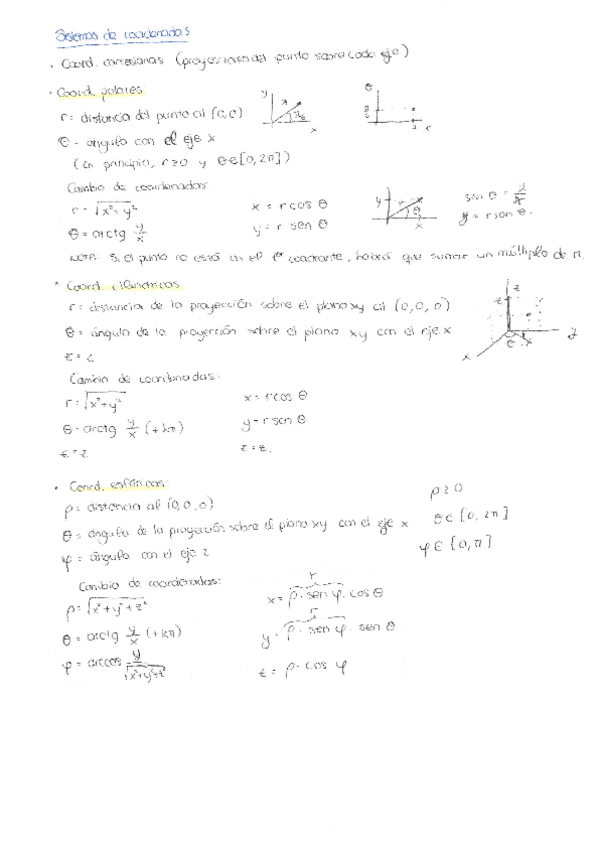 Sistemas de coordenadas
· Coord. cartesianas (proyecciones del punto sobre cada eje)
· Coord. polares
r = distancia del punto al (0,0)
θ = angulo con el eje x
(En principio, r≥0 y θ∈[0,2π])
y
x
θ
r
Cambio de coordenadas
r = √x²+y²
x = r cos θ
θ = arctg y/x
y = r sen θ
y
r
θ
x
sen θ = y/r
y = r sen θ.
NOTA: Si el punto no está en el 1er cuadrante, habrá que sumar un múltiplo de π.
· Coord. cilíndricas
r = distancia de la proyección sobre el plano xy al (0,0,0)
θ = ángulo de la proyección sobre el plano xy con el eje x
z = z
z
y
x
θ
r
Cambio de coordenadas:
r = √x²+y²
x = r cos θ
θ = arctg y/x (+kπ)
y = r sen θ
z = z
z = z.
· Coord. esféricas:
ρ = distancia al (0,0,0)
ρ ≥ 0
θ = angulo de la proyección sobre el plano xy con el eje x
θ ∈ [0,2π]
φ = ángulo con el eje z
φ ∈ [0,π]
Cambio de coordenadas:
ρ = √x²+y²+z²
r
x = ρ · sen φ · cos θ
θ = arctg y/x (+kπ)
r
y = ρ · sen φ · sen θ
φ = arccos y/√x²+y²+z²
z = ρ · cos φ